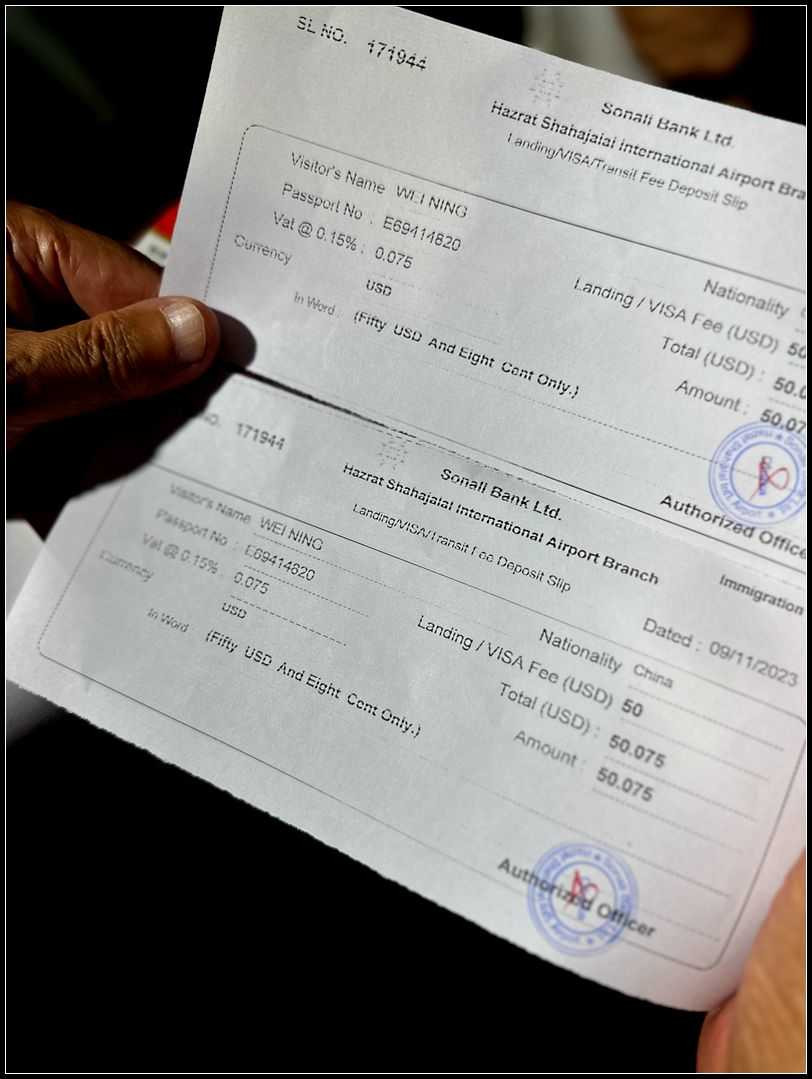 SL NO. 171944
Sonali Bank Ltd.
Hazrat Shahajalal International Airport Bra
Landing/VISA/Transit Fee Deposit Slip
Visitor's Name WEI NING
Passport No : E69414820
Vat @ 0.15% : 0.075
Currency USD
In Word : (Fifty USD And Eight Cent Only.)
Nationality
Landing / VISA Fee (USD) 50
Total (USD) : 50.0
Amount : 50.07
Authorized Office
NO. 171944
Sonali Bank Ltd.
Hazrat Shahajalal International Airport Branch
Landing/VISA/Transit Fee Deposit Slip
Immigration
Dated : 09/11/2023
Visitor's Name WEI NING
Passport No : E69414820
Vat @ 0.15% 0.075
Currency USD
In Word (Fifty USD And Eight Cent Only.)
Nationality China
Landing / VISA Fee (USD) 50
Total (USD) : 50.075
Amount : 50.075
Authorized Officer